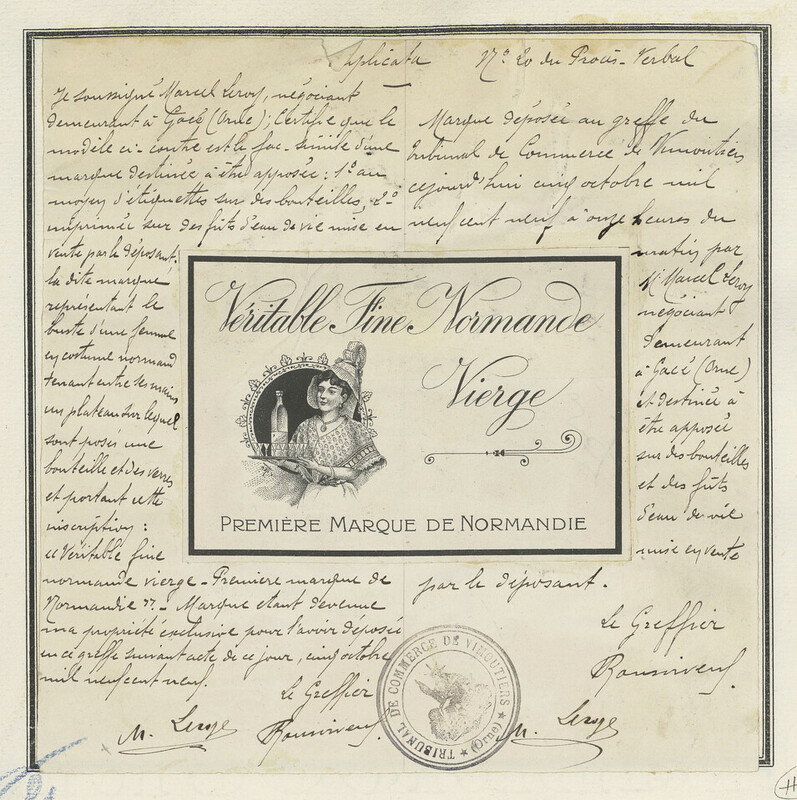 Duplicata
Je soussigné Marcel Leroy, négociant
demeurant à Gacé (Orne); Certifie que le
modèle ci-contre est le fac-simile d'une
marque destinée à être apposée: 1º au
moyen d'étiquettes sur des bouteilles, 2º
imprimée sur des fûts d'eau de vie mise en
vente par le déposant.
la dite marque
représentant le
buste d'une femme
en costume normand
tenant entre ses mains
un plateau sur lequel
sont posés une
bouteille et des verres
et portant cette
inscription:
"Véritable fine
normande vierge - Première marque de
Normandie". - Marque étant devenue
ma propriété exclusive pour l'avoir déposée
en ce greffe suivant acte de ce jour, cinq octobre
mil neuf cent neuf.
Le Greffier
M. Leroy
Nº 20 du Procès-Verbal
Marque déposée au greffe du
Tribunal de Commerce de Vimoutiers
cejourd'hui cinq octobre mil
neuf cent neuf à onze heures du
matin par
M. Marcel Leroy
négociant
demeurant
à Gacé (Orne)
et destinée à
être apposée
sur des bouteilles
et des fûts
d'eau de vie
mise en vente
par le déposant.
Le Greffier
M. Leroy
Véritable Fine Normande
Vierge
PREMIÈRE MARQUE DE NORMANDIE
TRIBUNAL DE COMMERCE DE VIMOUTIERS
(Orne)